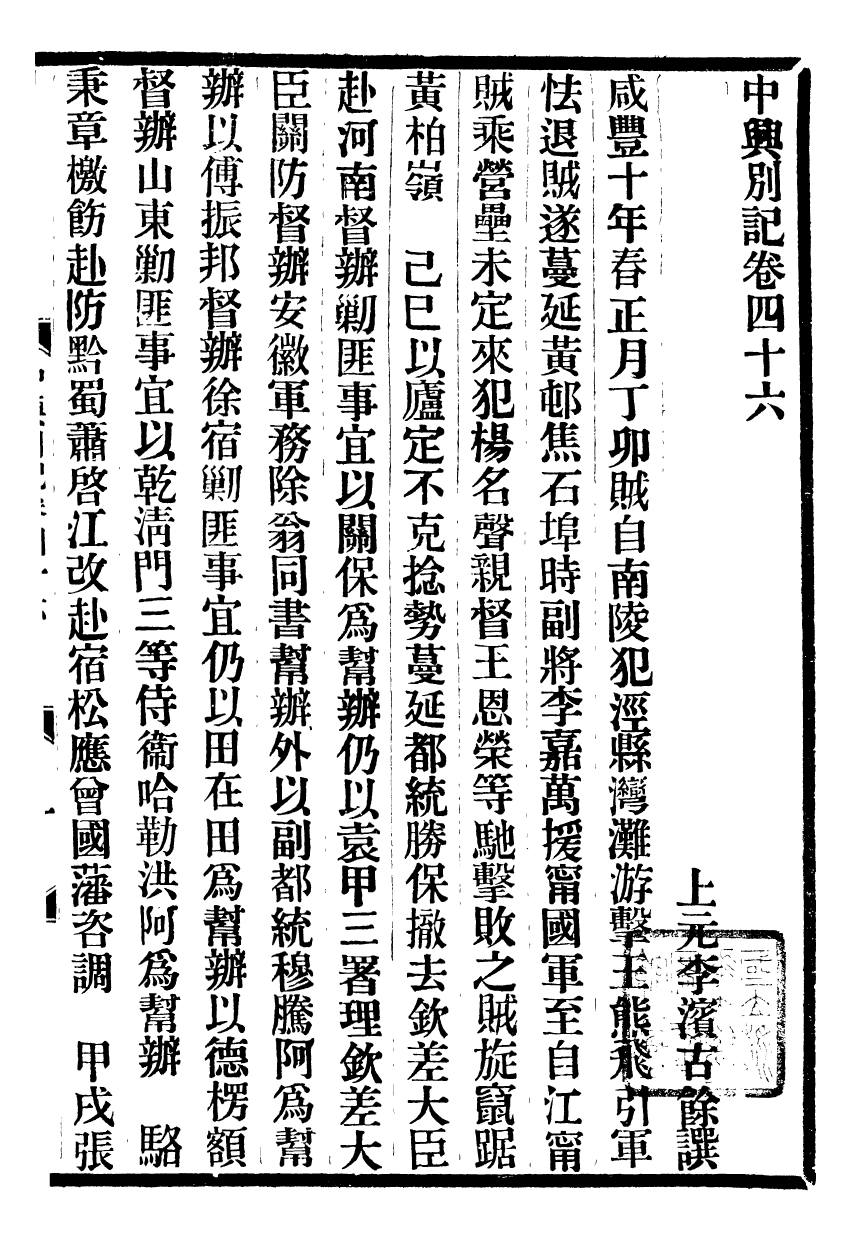 中興別記卷四十六
上元李濱古餘譔
咸豐十年春正月丁卯賊自南陵犯涇縣灣灘游擊王熊飛引軍
怯退賊遂蔓延黃邨焦石埠時副將李嘉萬援甯國軍至自江甯
賊乘營壘未定來犯楊名聲親督王恩榮等馳擊敗之賊旋竄踞
黃柏嶺　己巳以廬定不克捻勢蔓延都統勝保撤去欽差大臣
赴河南督辦勦匪事宜以關保爲幫辦仍以袁甲三署理欽差大
臣關防督辦安徽軍務除翁同書幫辦外以副都統穆騰阿爲幫
辦以傅振邦督辦徐宿勦匪事宜仍以田在田爲幫辦以德楞額
督辦山東勦匪事宜以乾淸門三等侍衞哈勒洪阿爲幫辦　駱
秉章檄飭赴防黔蜀蕭啓江改赴宿松應曾國藩咨調　甲戌張